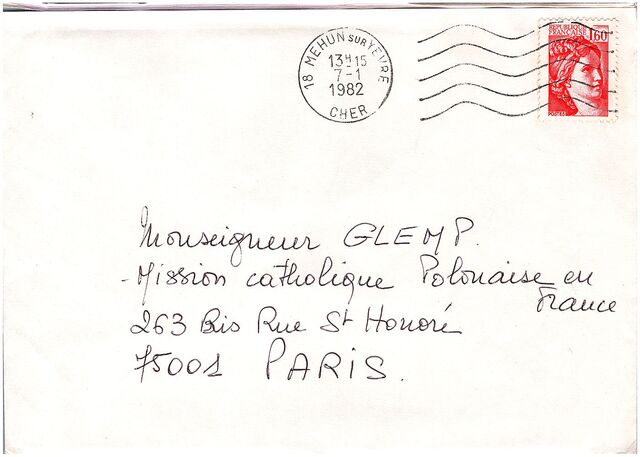 18 MEHUN SUR YEVRE
13H15
7-1
1982
CHER
REPUBLIQUE
FRANCAISE
1,60
POSTES
Monseigneur GLEMP.
-Mission catholique Polonaise en
France
263 Bis Rue St Honoré
75001 PARIS.